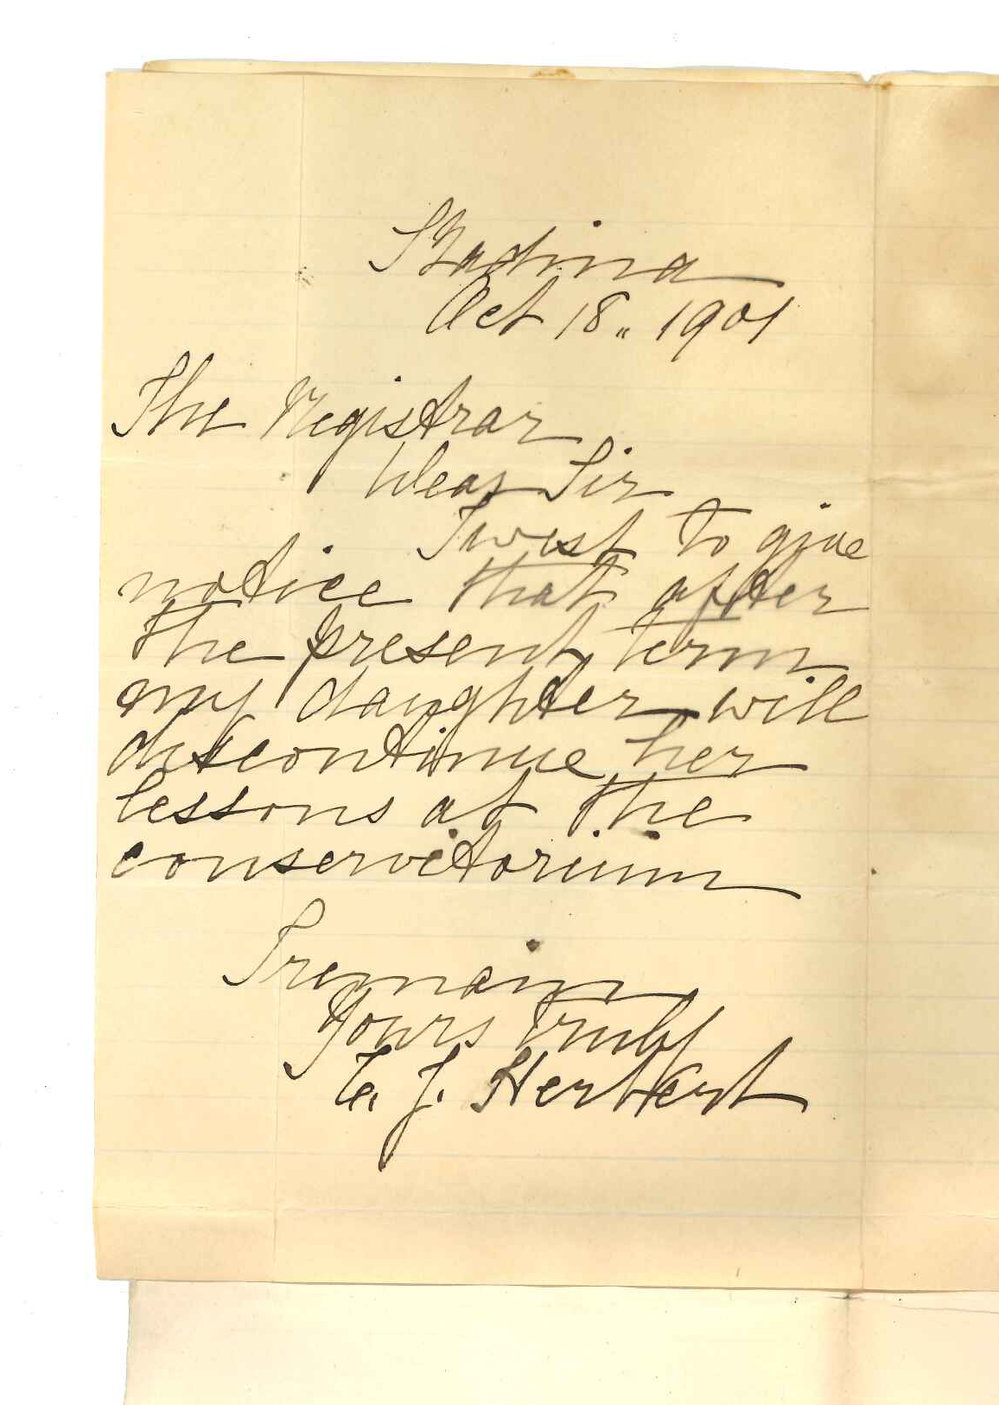 Kadina
Oct 18" 1901
The Registrar
Dear Sir
I wish to give
notice that after
the present term
my daughter will
discontinue her
lessons at the
conservitorium
I remain
Yours truly
J. Herbert